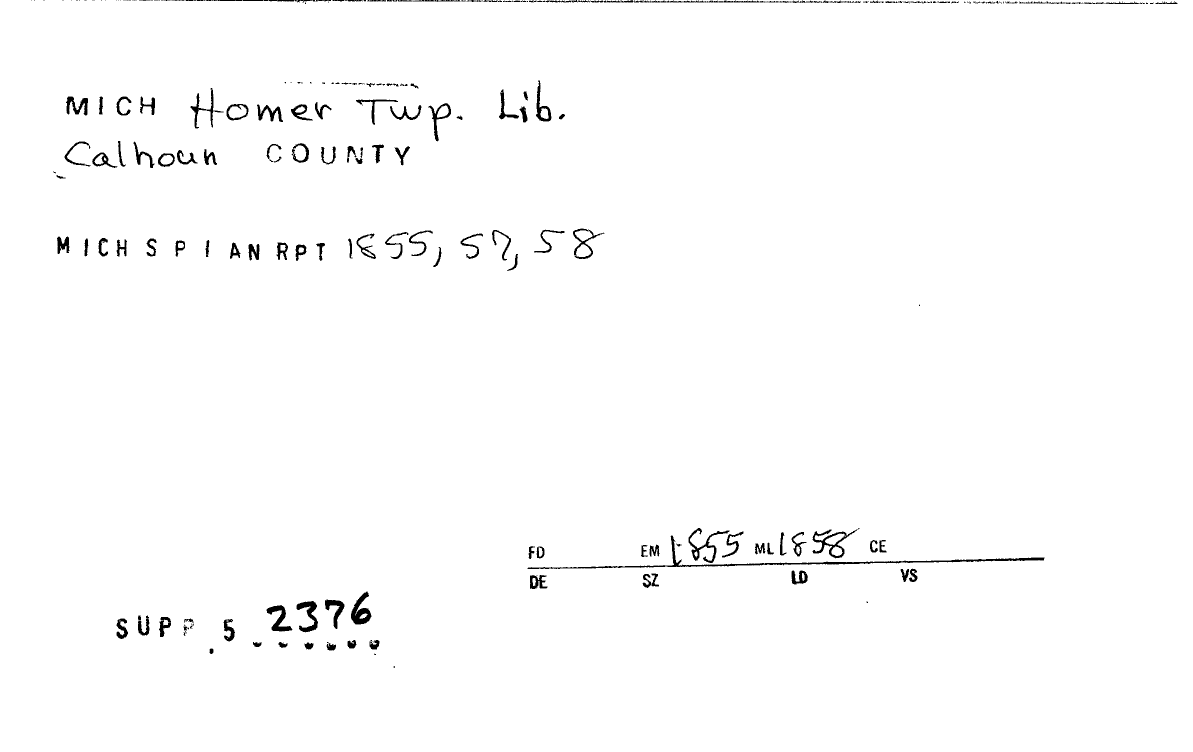 MICH Homer Twp. Lib.
Calhoun COUNTY
MICH S P I AN RPT 1855, 57, 58
FD EM 1855 ML 1858 CE
DE SZ LD VS
SUPP 5 2376